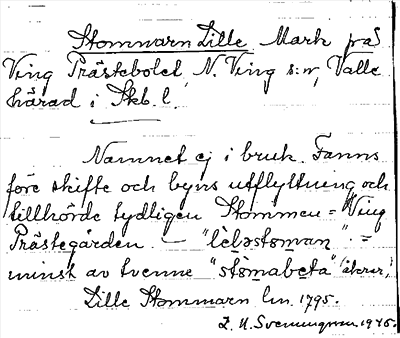 Stommarn Lille Mark på
Ving Prästebolet, N. Ving s:n, Valle
härad i Skb. l.
Namnet ej i bruk. Fanns
före skifte och byns utflyttning och
tillhörde tydligen Stommen = Ving
Prästegården. — "lèbəstoman" =
minst av tvenne "stòmabeta" (åkrar)
Lille Stommarn lm. 1795.
L. A. Svenungsson 1945.